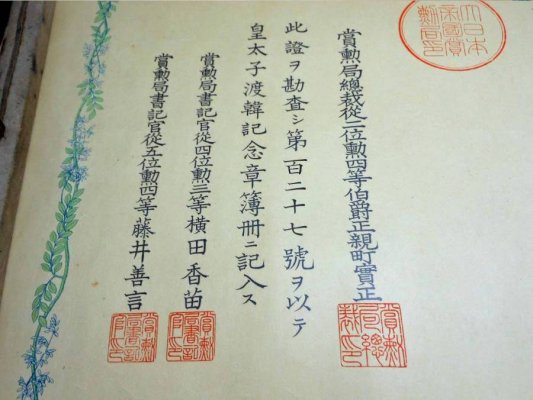 大日本帝國賞勲局印
賞勲局總裁從二位勲四等伯爵正親町實正
賞勲局總裁印
此證ヲ勘査シ第百二十七號ヲ以テ
皇太子渡韓記念章簿册ニ記入ス
賞勲局書記官從四位勲三等橫田香苗
賞勲局書記官印
賞勲局書記官從五位勲四等藤井善言
賞勲局書記官印